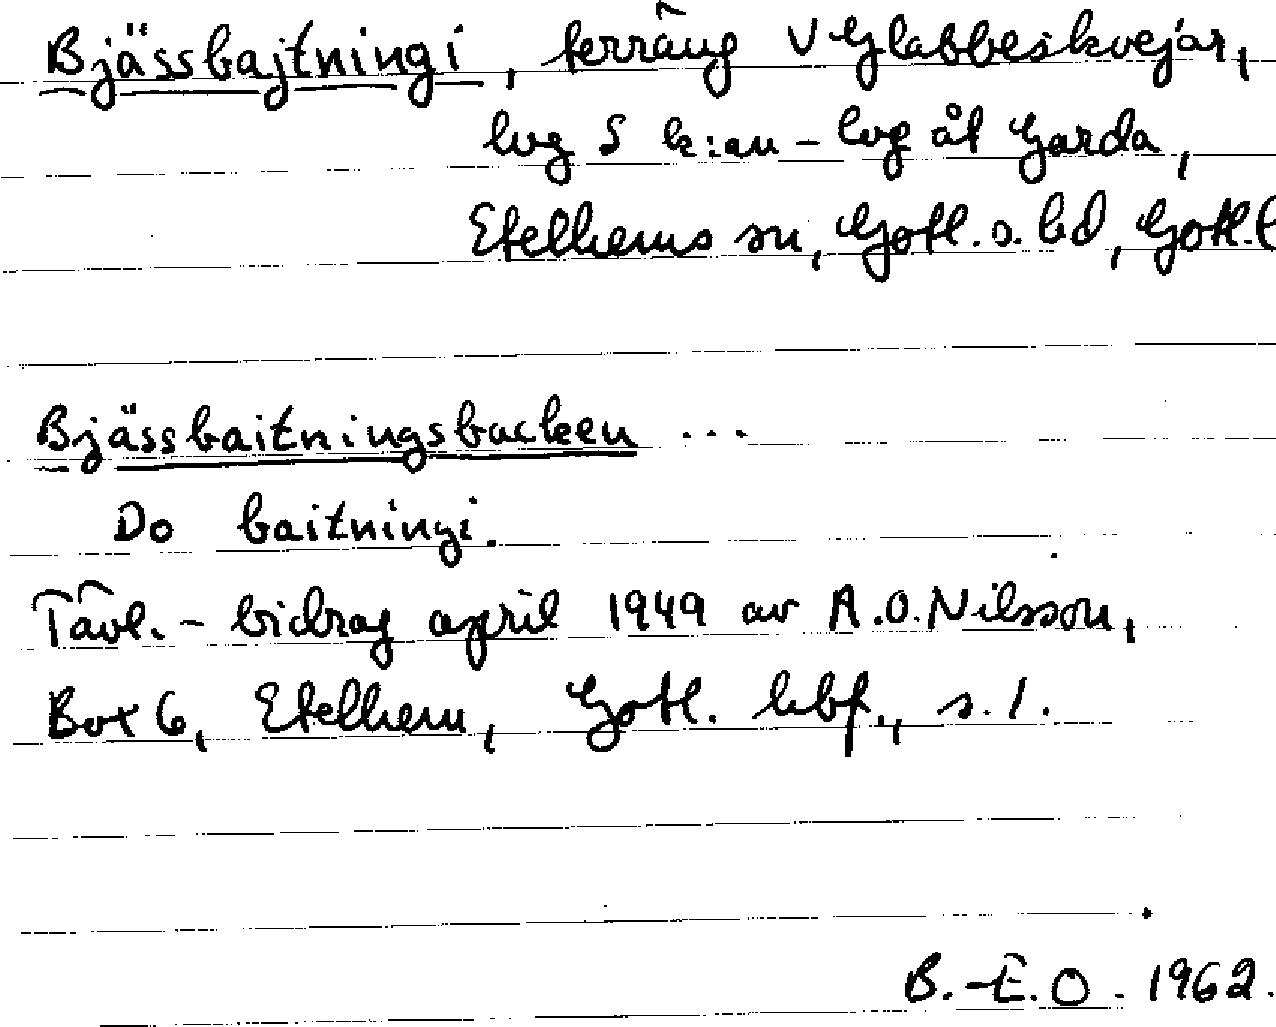 Bjässbajtningi, terräng V Glabbeskvejar,
lvg S k:an - lvg åt Garda,
Etelhems sn, Gotl. s. hd, Gotl. l
Bjässbaitningsbacken ...
Do baitningi.
Tävl. - bidrag april 1949 av A.O. Nilsson,
Box 6, Etelhem, Gotl. hbf., s. 1.
B.-E.O. 1962.